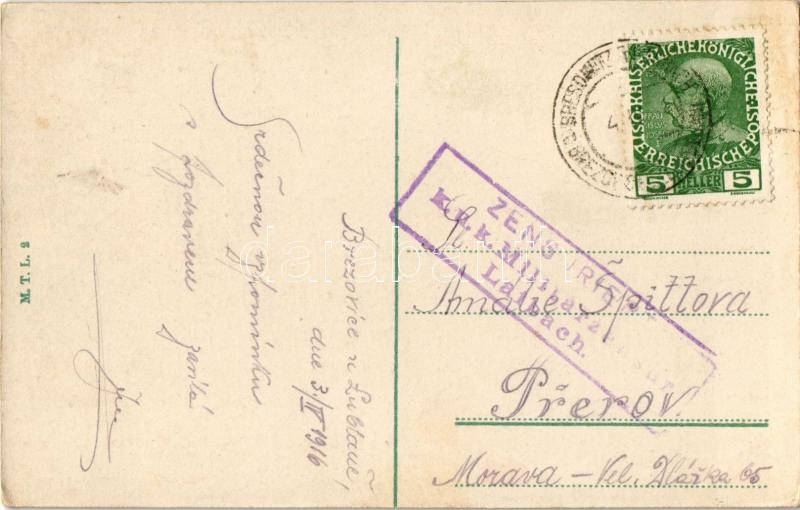 Brezovice u Lublaně,
dne 3/IV 1916
Srdečnou vzpomínku
s pozdravem zasílá
M. T. L. 2
KAISERLICHE KÖNIGLICHE
ÖSTERREICHISCHE POST
5 HELLER 5
ZENSURIERT
K. u. k. Militärzensur
Laibach.
Sl.
Amalie Špittova
Přerov.
Morava – Vel. Dlážka 65